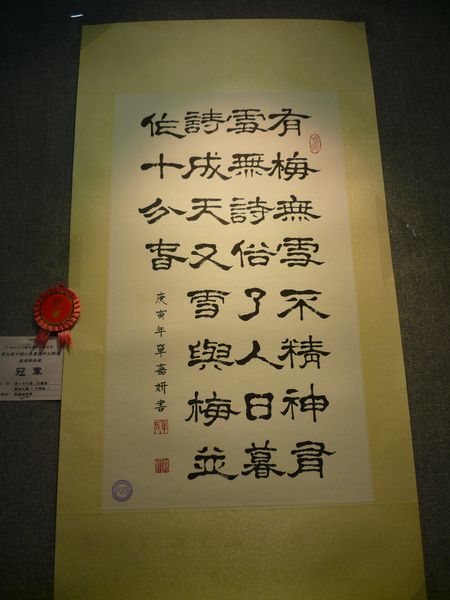 有梅無雪不精神有
雪無詩俗了人日暮
詩成天又雪與梅並
作十分春
庚寅年單嘉妍書
冠軍